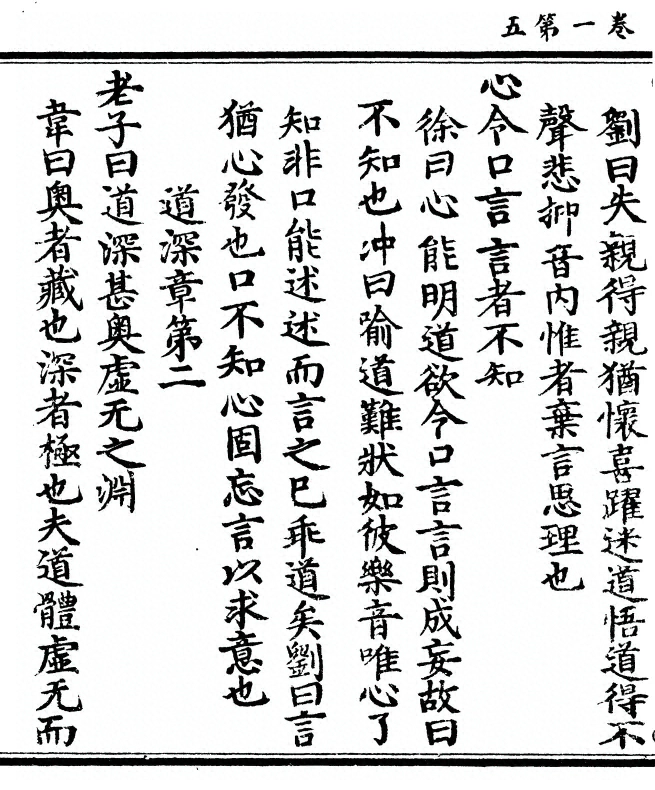 卷一第五
劉曰失親得親猶懷喜躍迷道悟道得不
聲悲抑音内惟者棄言思理也
心令口言言者不知
徐曰心能明道欲令口言言則成妄故曰
不知也冲曰喻道難狀如彼樂音唯心了
知非口能述述而言之巳乖道矣劉曰言
猶心發也口不知心固忘言以求意也
道深章第二
老子曰道深甚奥虛无之淵
韋曰奥者藏也深者極也夫道體虛无而